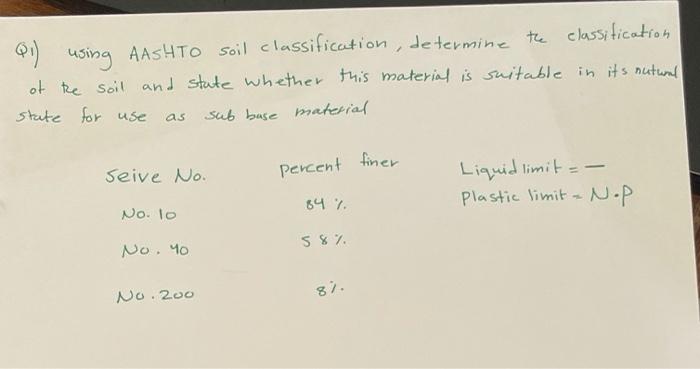 Q1) using AASHTO soil classification, determine the classification
of the soil and state whether this material is suitable in its nutural
state for use as sub base material
Seive No. percent finer Liquid limit = —
No. 10 84 % Plastic limit = N.P
No. 40 58 %.
No. 200 8 %.